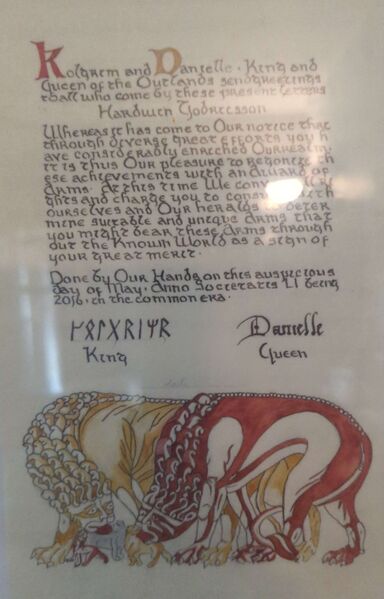 Kolgrim and Danielle, King and
Queen of the Outlands send greetings
to all who come by these present letters
Hardwin
Whereas it has come to Our notice that
through diverse great efforts you h
ave considerably enriched Our realm,
it is thus Our pleasure to th
ese achievements with an award of
Arms. At this time We
ghts and charge you to with
ourselves and Our heralds to deter
mine suitable and unique Arms that
you might bear these Arms through
out the Known World as a sign of
your great merit.
Done by Our Hands on this auspicious
day of May, Anno Societatis LI being
2016, in the common era.
ᚲᛟᛚᚷᚱᛁᛗᚱ Danielle
King Queen